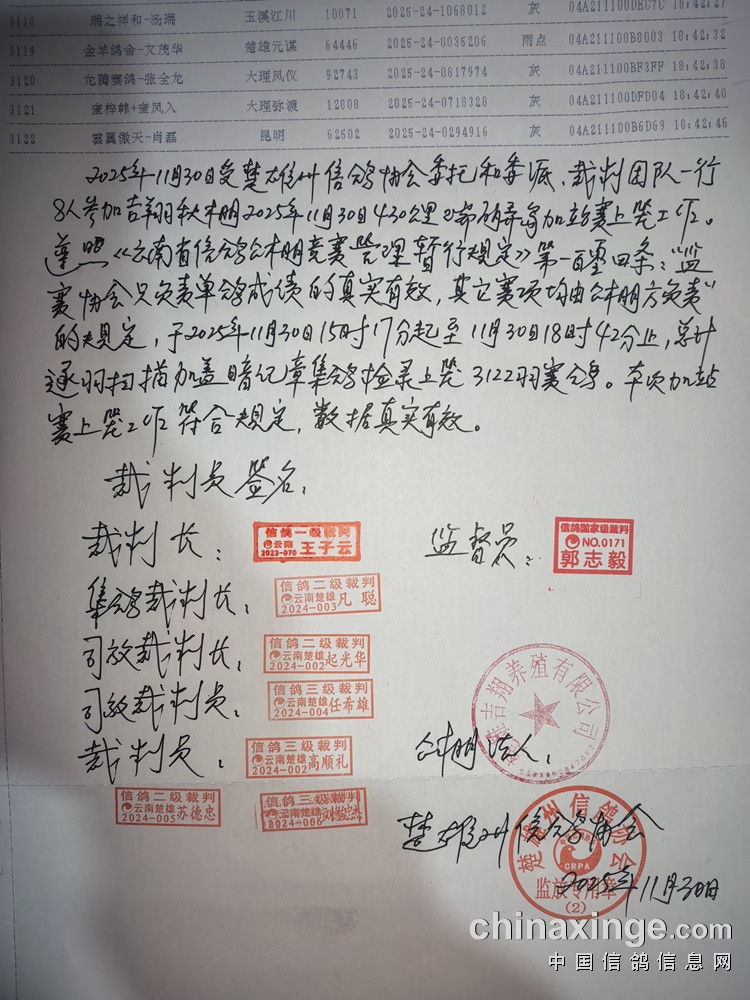 3118 瑞之祥和-汤瑞 玉溪江川 10071 2025-24-1068012 灰 04A211100DEC7C 18:42:27
3119 金羊鸽舍-文茂华 楚雄元谋 64446 2025-24-0035206 雨点 04A211100B8003 18:42:32
3120 龙腾赛鸽-张全龙 大理凤仪 92743 2025-24-0817974 灰 04A211100BF3FF 18:42:38
3121 奎梓韩+奎凤入 大理弥渡 12808 2025-24-0718328 灰 04A211100DFD04 18:42:40
3122 云翼傲天-肖磊 昆明 62502 2025-24-0294916 灰 04A211100B6D69 18:42:46
2025年11月30日受楚雄州信鸽协会委托和委派,裁判团队一行
8人参加吉翔秋棚2025年11月30日430公里加站赛上笼工作。
遵照《云南省信鸽公棚竞赛管理暂行规定》第一百零四条:"监
赛协会只负责单鸽成绩的真实有效,其它赛项均由公棚方负责"
的规定,于2025年11月30日15时17分起至11月30日18时42分止,总计
逐羽扫描加盖暗记章集鸽检录上笼3122羽赛鸽。本次加站
赛上笼工作符合规定,数据真实有效。
裁判员签名:
裁判长: 信鸽一级裁判 云南 2023-070 王子云 监督员: 信鸽国家级裁判 NO.0171 郭志毅
集鸽裁判长: 信鸽二级裁判 云南楚雄 2024-003 凡聪
司放裁判长: 信鸽二级裁判 云南楚雄 2024-002 起光华
司放裁判员: 信鸽三级裁判 云南楚雄 2024-004 任希雄
裁判员: 信鸽三级裁判 云南楚雄 2024-002 高顺礼 公棚法人: 吉翔养殖有限公司
信鸽二级裁判 云南楚雄 2024-005 苏德忠 信鸽三级裁判 云南楚雄 2024-006
楚雄州信鸽协会
楚雄州信鸽协会 CRPA 监放专用章 (2)
2025年11月30日
chinaxinge.com
中国信鸽信息网